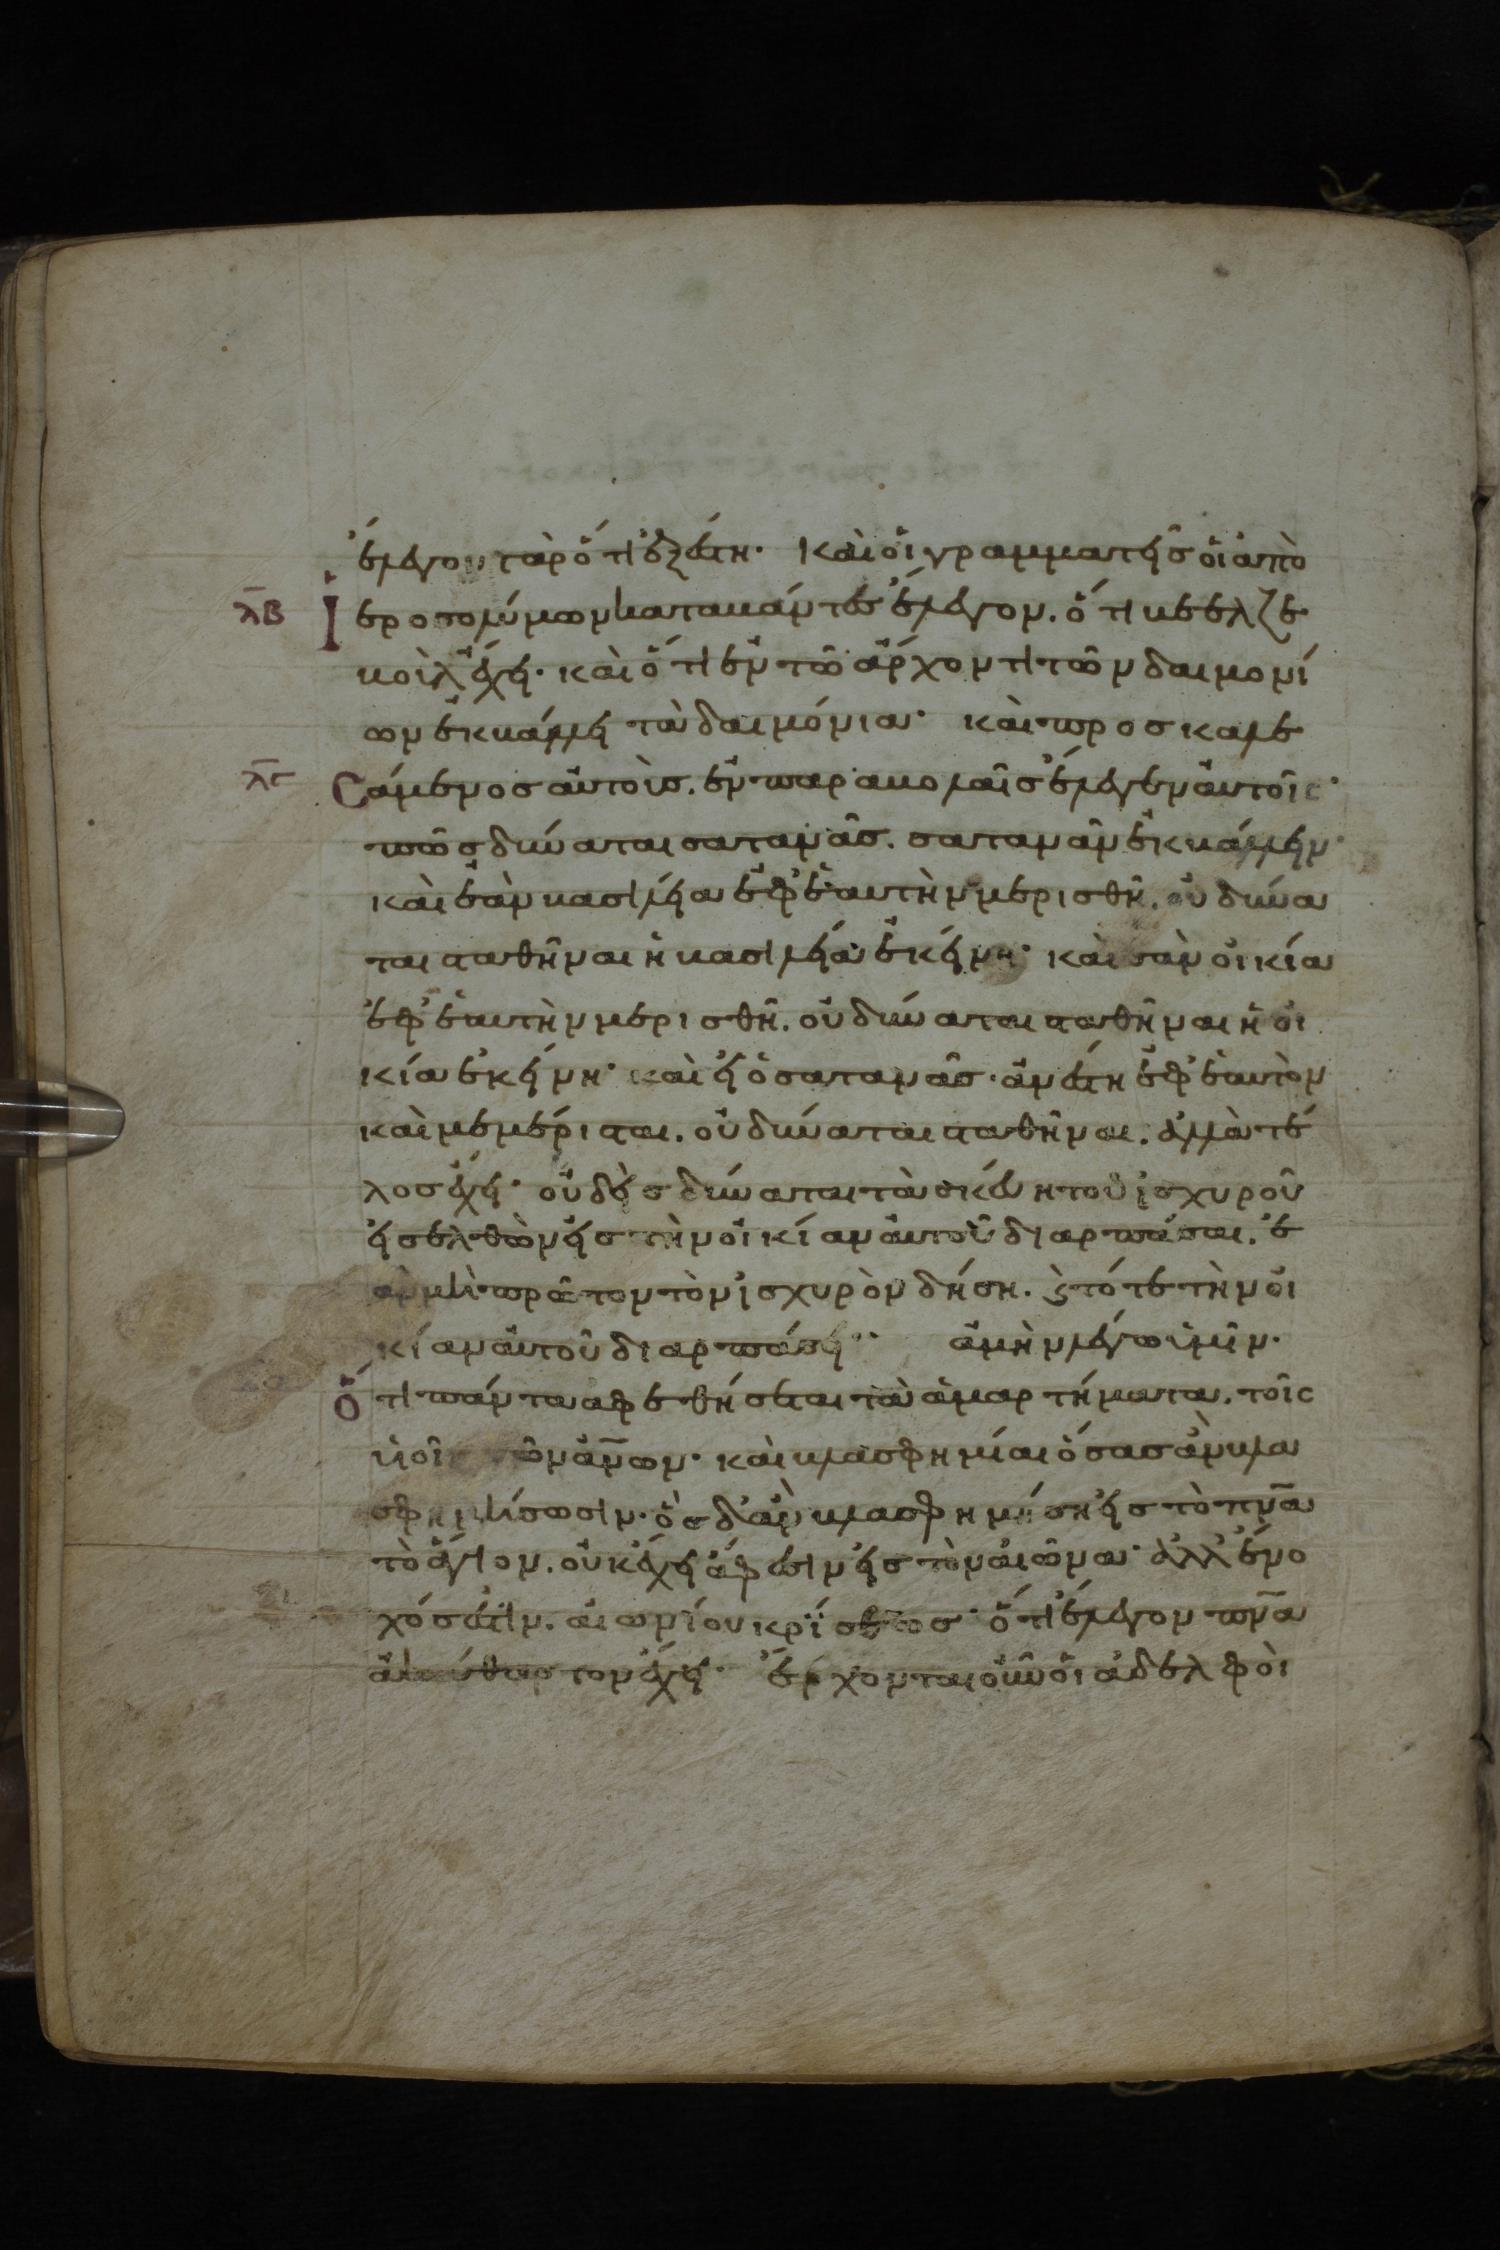 ἔλεγον γὰρ ὅτι ἐξέστη· Καὶ οἱ γραμματεῖς οἱ ἀπὸ
λβ Ἱεροσολύμων καταβάντες ἔλεγον. ὅτι βεελζε
βοὺλ ἔχει· καὶ ὅτι ἐν τῶ ἄρχοντι τῶν δαιμονί
ων ἐκβάλλει τὰ δαιμόνια· καὶ προσκαλε
λγ Σάμενος αὐτοὺς. ἐν παραβολαῖς ἔλεγεν αὐτοῖς·
πῶς δύναται σατανᾶς. σατανᾶν ἐκβάλλειν·
καὶ ἐὰν βασιλεία ἐφ' ἑαυτὴν μερισθῆ. οὐ δύνα
ται σταθῆναι ἡ βασιλεία ἐκείνη· καὶ ἐὰν οἰκία
ἐφ' ἑαυτὴν μερισθῆ. οὐ δύναται σταθῆναι ἡ οἰ
κία ἐκείνη· καὶ εἰ ὁ σατανᾶς· ἀνέστη ἐφ' ἑαυτὸν
καὶ μεμέρισται. οὐ δύναται σταθῆναι. ἀλλὰ τέ
λος ἔχει· οὐδεὶς δύναται τὰ σκεύη τοῦ ἰσχυροῦ
εἰσελθὼν εἰς τὴν οἰκίαν αὐτοῦ διαρπάσαι. ἐ
ὰν μὴ πρῶτον τὸν ἰσχυρὸν δήση. ϛ τότε τὴν οἰ
κίαν αὐτοῦ διαρπάσει·· ἀμὴν λέγω ὑμῖν·
Ὅτι πάντα ἀφεθήσεται τὰ ἁμαρτήματα. τοῖς
υἱοῖς τῶν ἀν̅ων· καὶ βλασφημίαι ὅσας ἂν βλα
σφημήσωσιν· ὃς δ' ἂν βλασφημήση εἰς τὸ πν̅α
τὸ ἅγιον. οὐκ ἔχει ἄφεσιν εἰς τὸν αἰῶνα· ἀλλ' ἔνο
χός ἐστιν. αἰωνίου κρίσεως· ὅτι ἔλεγον πν̅α
ἀκάθαρτον ἔχει· ἔρχονται οὖν οἱ ἀδελφοὶ